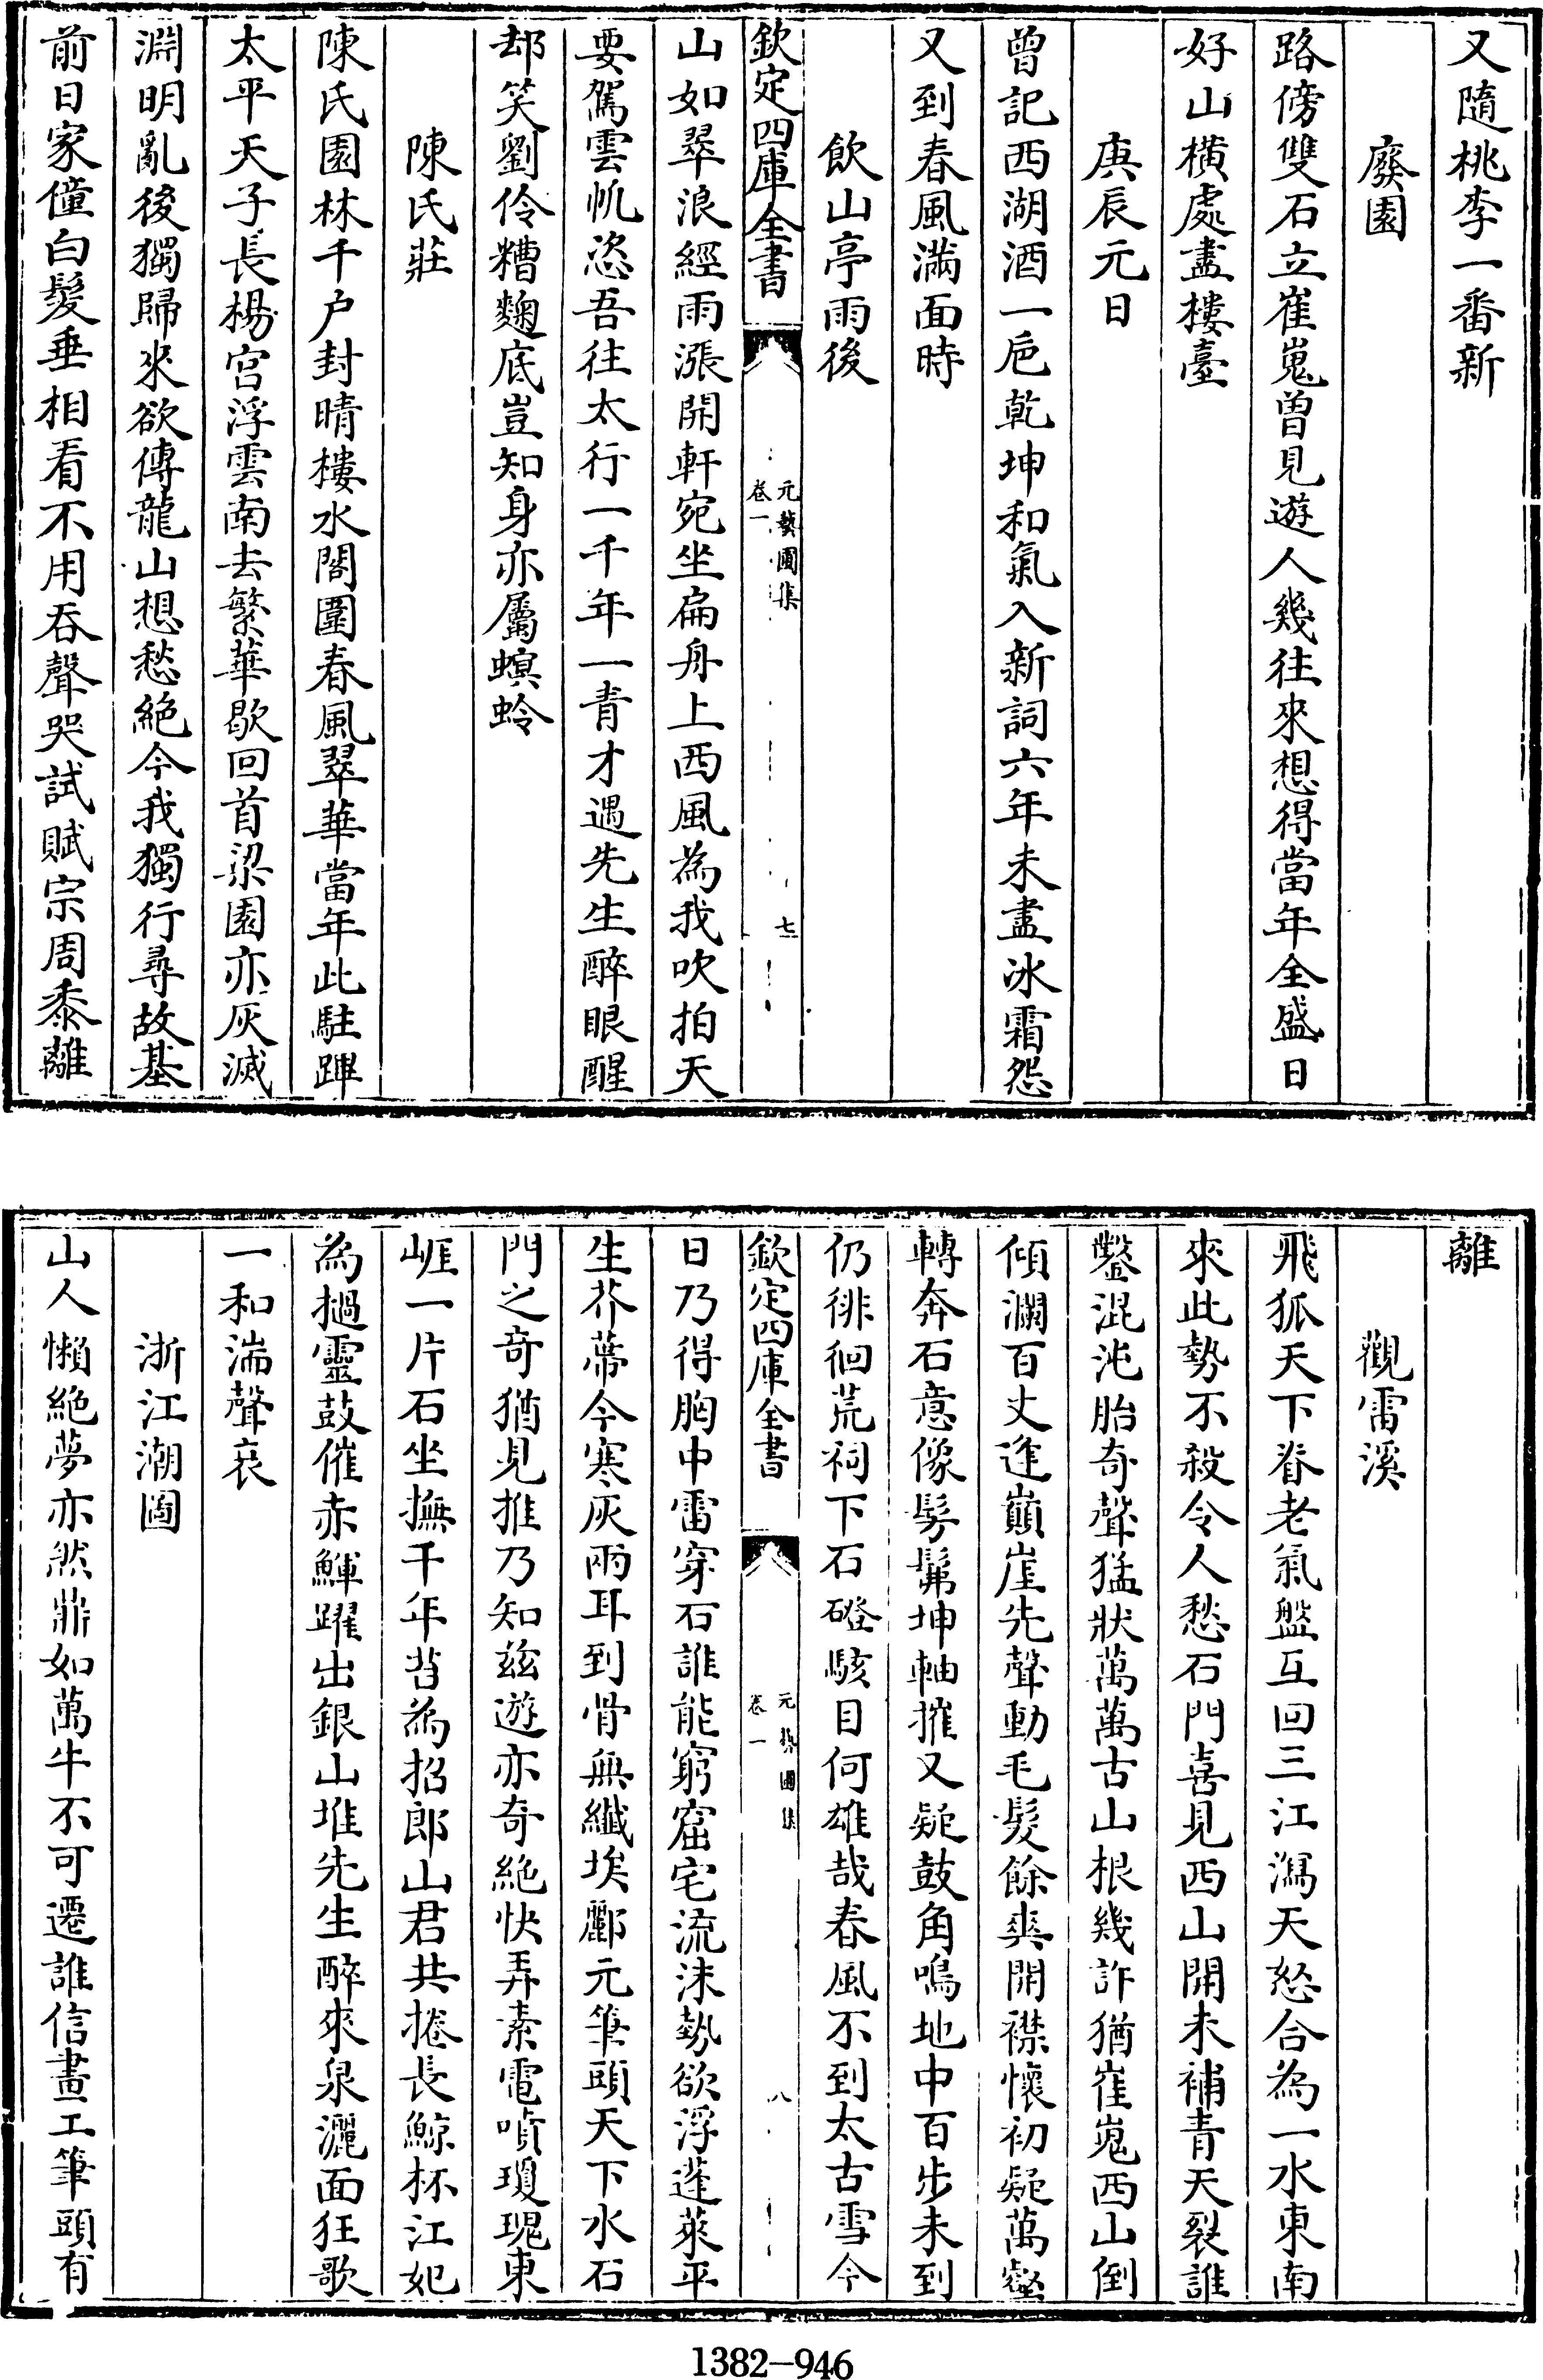 又隨桃李一番新
廢園
路傍雙石立崔嵬曾見遊人幾往來想得當年全盛日
好山橫處盡樓臺
庚辰元日
曾記西湖酒一巵乾坤和氣入新詞六年未盡冰霜怨
又到春風滿面時
飲山亭雨後
欽定四庫全書
元藝圃集
卷一
七
山如翠浪經雨漲開軒宛坐扁舟上西風為我吹拍天
要駕雲帆恣吾往太行一千年一青才遇先生醉眼醒
却笑劉伶糟麴底豈知身亦屬螟蛉
陳氏莊
陳氏園林千户封晴樓水閣圍春風翠華當年此駐蹕
太平天子長楊宮浮雲南去繁華歇回首梁園亦灰滅
淵明亂後獨歸來欲傳龍山想愁絶今我獨行尋故基
前日家僮白髮垂相看不用吞聲哭試賦宗周黍離
離
觀雷溪
飛狐天下脊老氣盤互回三江瀉天怒合為一水東南
來此勢不殺令人愁石門喜見西山開未補青天裂誰
鑿混沌胎奇聲猛狀萬萬古山根幾許猶崔嵬西山倒
傾瀾百丈逢巔崖先聲動毛髮餘爽開襟懷初疑萬壑
轉奔石意像髣髴坤軸摧又疑鼓角鳴地中百步未到
仍徘徊荒祠下石磴駭目何雄哉春風不到太古雪今
欽定四庫全書
元藝圃集
卷一
八
日乃得胸中雷穿石誰能窮窟宅流沫勢欲浮蓬萊平
生芥蔕今寒灰兩耳到骨無纖埃酈元筆頭天下水石
門之奇猶見推乃知兹遊亦奇絶快弄素電噴瓊瑰東
崕一片石坐撫千年苔為招郎山君共捲長鯨杯江妃
為撾靈鼓催赤鯶躍出銀山堆先生醉來泉灑面狂歌
一和湍聲哀
浙江潮圖
山人懶絶夢亦然鼎如萬牛不可遷誰信畫工筆頭有
1382—946